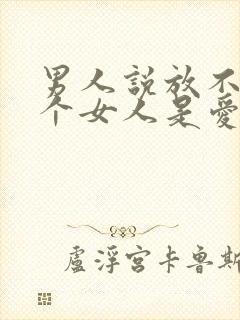 男人説放不
个女人是愛
盧浮宮卡魯斯